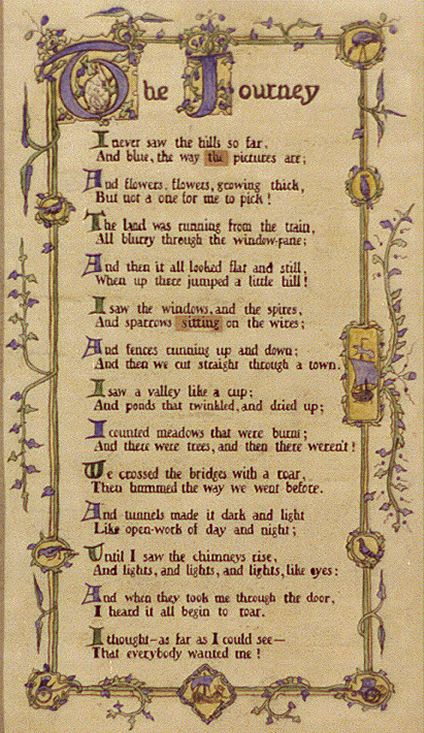 The Journey
I never saw the hills so far,
And blue, the way the pictures are;
And flowers, flowers, growing thick,
But not a one for me to pick!
The land was running from the train,
All blurry through the window-pane;
And then it all looked flat and still,
When up there jumped a little hill!
I saw the windows, and the spires,
And sparrows sitting on the wires;
And fences running up and down;
And then we cut straight through a town.
I saw a valley like a cup;
And ponds that twinkled, and dried up;
I counted meadows that were burnt;
And there were trees, and then there weren't!
We crossed the bridges with a roar,
Then hummed the way we went before.
And tunnels made it dark and light
Like open-work of day and night;
Until I saw the chimneys rise,
And lights, and lights, and lights, like eyes:
And when they took me through the door,
I heard it all begin to roar.
I thought—as far as I could see—
That everybody wanted me!